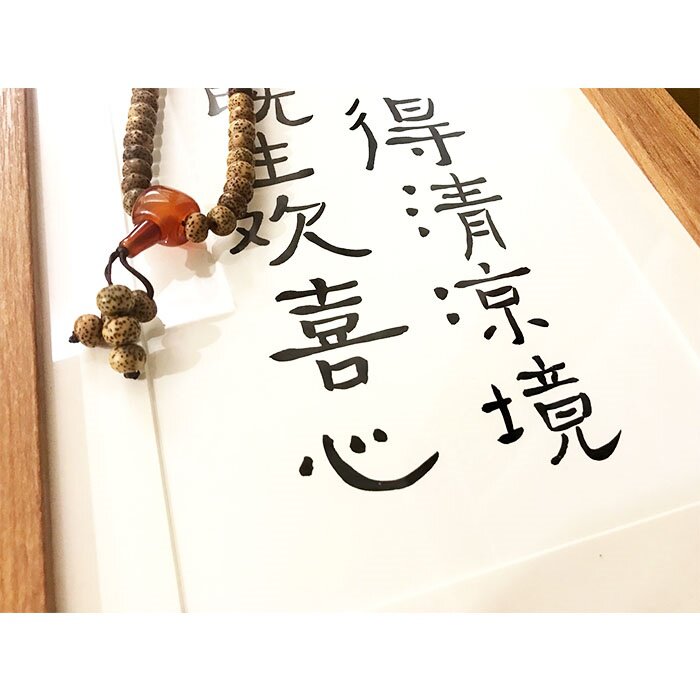 得清涼境
生欢喜心